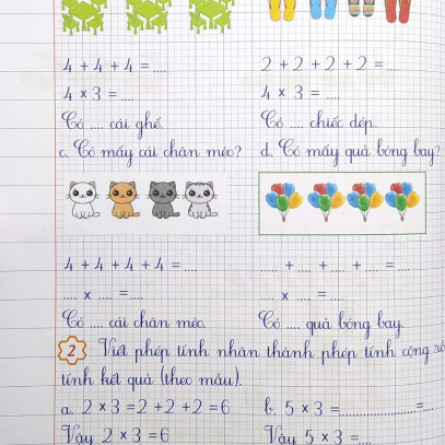 4 + 4 + 4 = .... 2 + 2 + 2 + 2 = ....
4 × 3 = .... 4 × 3 = ....
Có .... cái ghế. Có .... chiếc dép.
c. Có mấy cái chân mèo? d. Có mấy quả bóng bay?
4 + 4 + 4 + 4 = .... .... + .... + .... + .... = ....
.... × .... = .... .... × .... = ....
Có .... cái chân mèo. Có .... quả bóng bay.
2 Viết phép tính nhân thành phép tính cộng rồi
tính kết quả (theo mẫu).
a. 2 × 3 = 2 + 2 + 2 = 6 b. 5 × 3 = .................... = ....
Vậy 2 × 3 = 6 Vậy 5 × 3 = ....